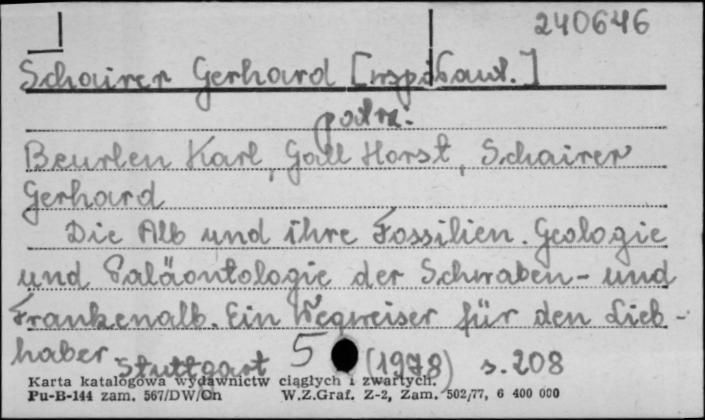 240646
Schairer Gerhard [współaut.]
podrz.
Beurlen Karl, Gall Horst, Schairer
Gerhard
Die Alb und ihre Fossilien. Geologie
und Paläontologie der Schwaben- und
Frankenalb. Ein Wegweiser für den Lieb-
haber Stuttgart 5 (1978) s. 208
Karta katalogowa wydawnictw ciągłych i zwartych.
Pu-B-144 zam. 567/DW/Cn W.Z.Graf. Z-2, Zam. 502/77, 6 400 000